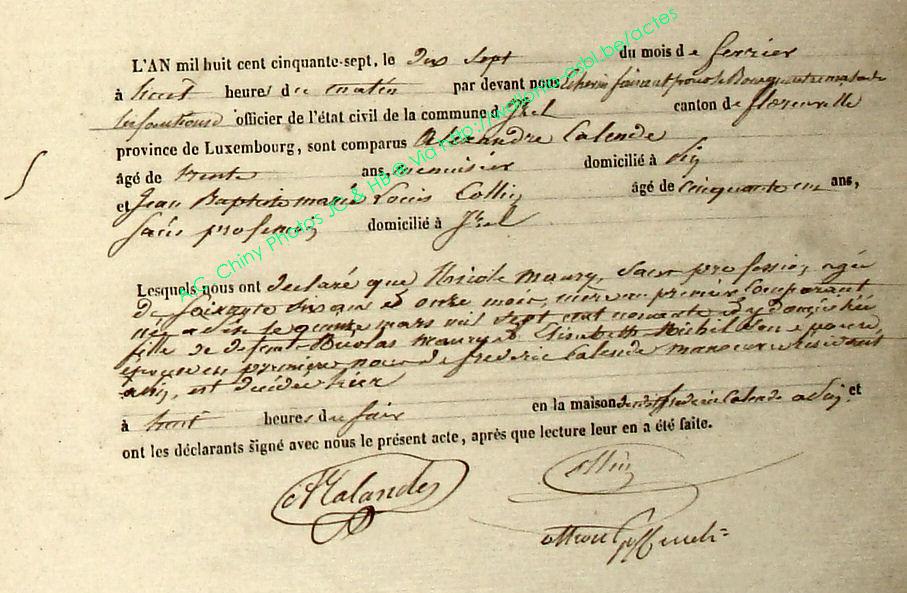 L'AN mil huit cent cinquante-sept, le dix sept du mois de ferrier
à huit heures du matin par devant nous Echevin faisant
officier de l'état civil de la commune d Izel canton de florenville
province de Luxembourg, sont comparus Alexandre Calende
âgé de trente ans, menuisier domicilié à
et Jean Baptiste marie Louis Collin âgé de cinquante un ans,
sans profession domicilié à Izel
Lesquels nous ont declaré que Nicole maury, sans profession, agée
de soixante cinq ans onze mois, mère au premier Comparant
née a le quinze mars mil sept cent nonante
fille de defunt Nicolas maury & Elisabeth Michel son epouse
epouse en première noce de frederic Calende manoeuvre résidant
est decedée hier
à huit heures du soir en la maison dudit frederic Calende a et
ont les déclarants signé avec nous le présent acte, après que lecture leur en a été faite.
A Calande
Collin
A.C. Chiny Photos JC & HB © Via http://wallonia-asbl.be/actes